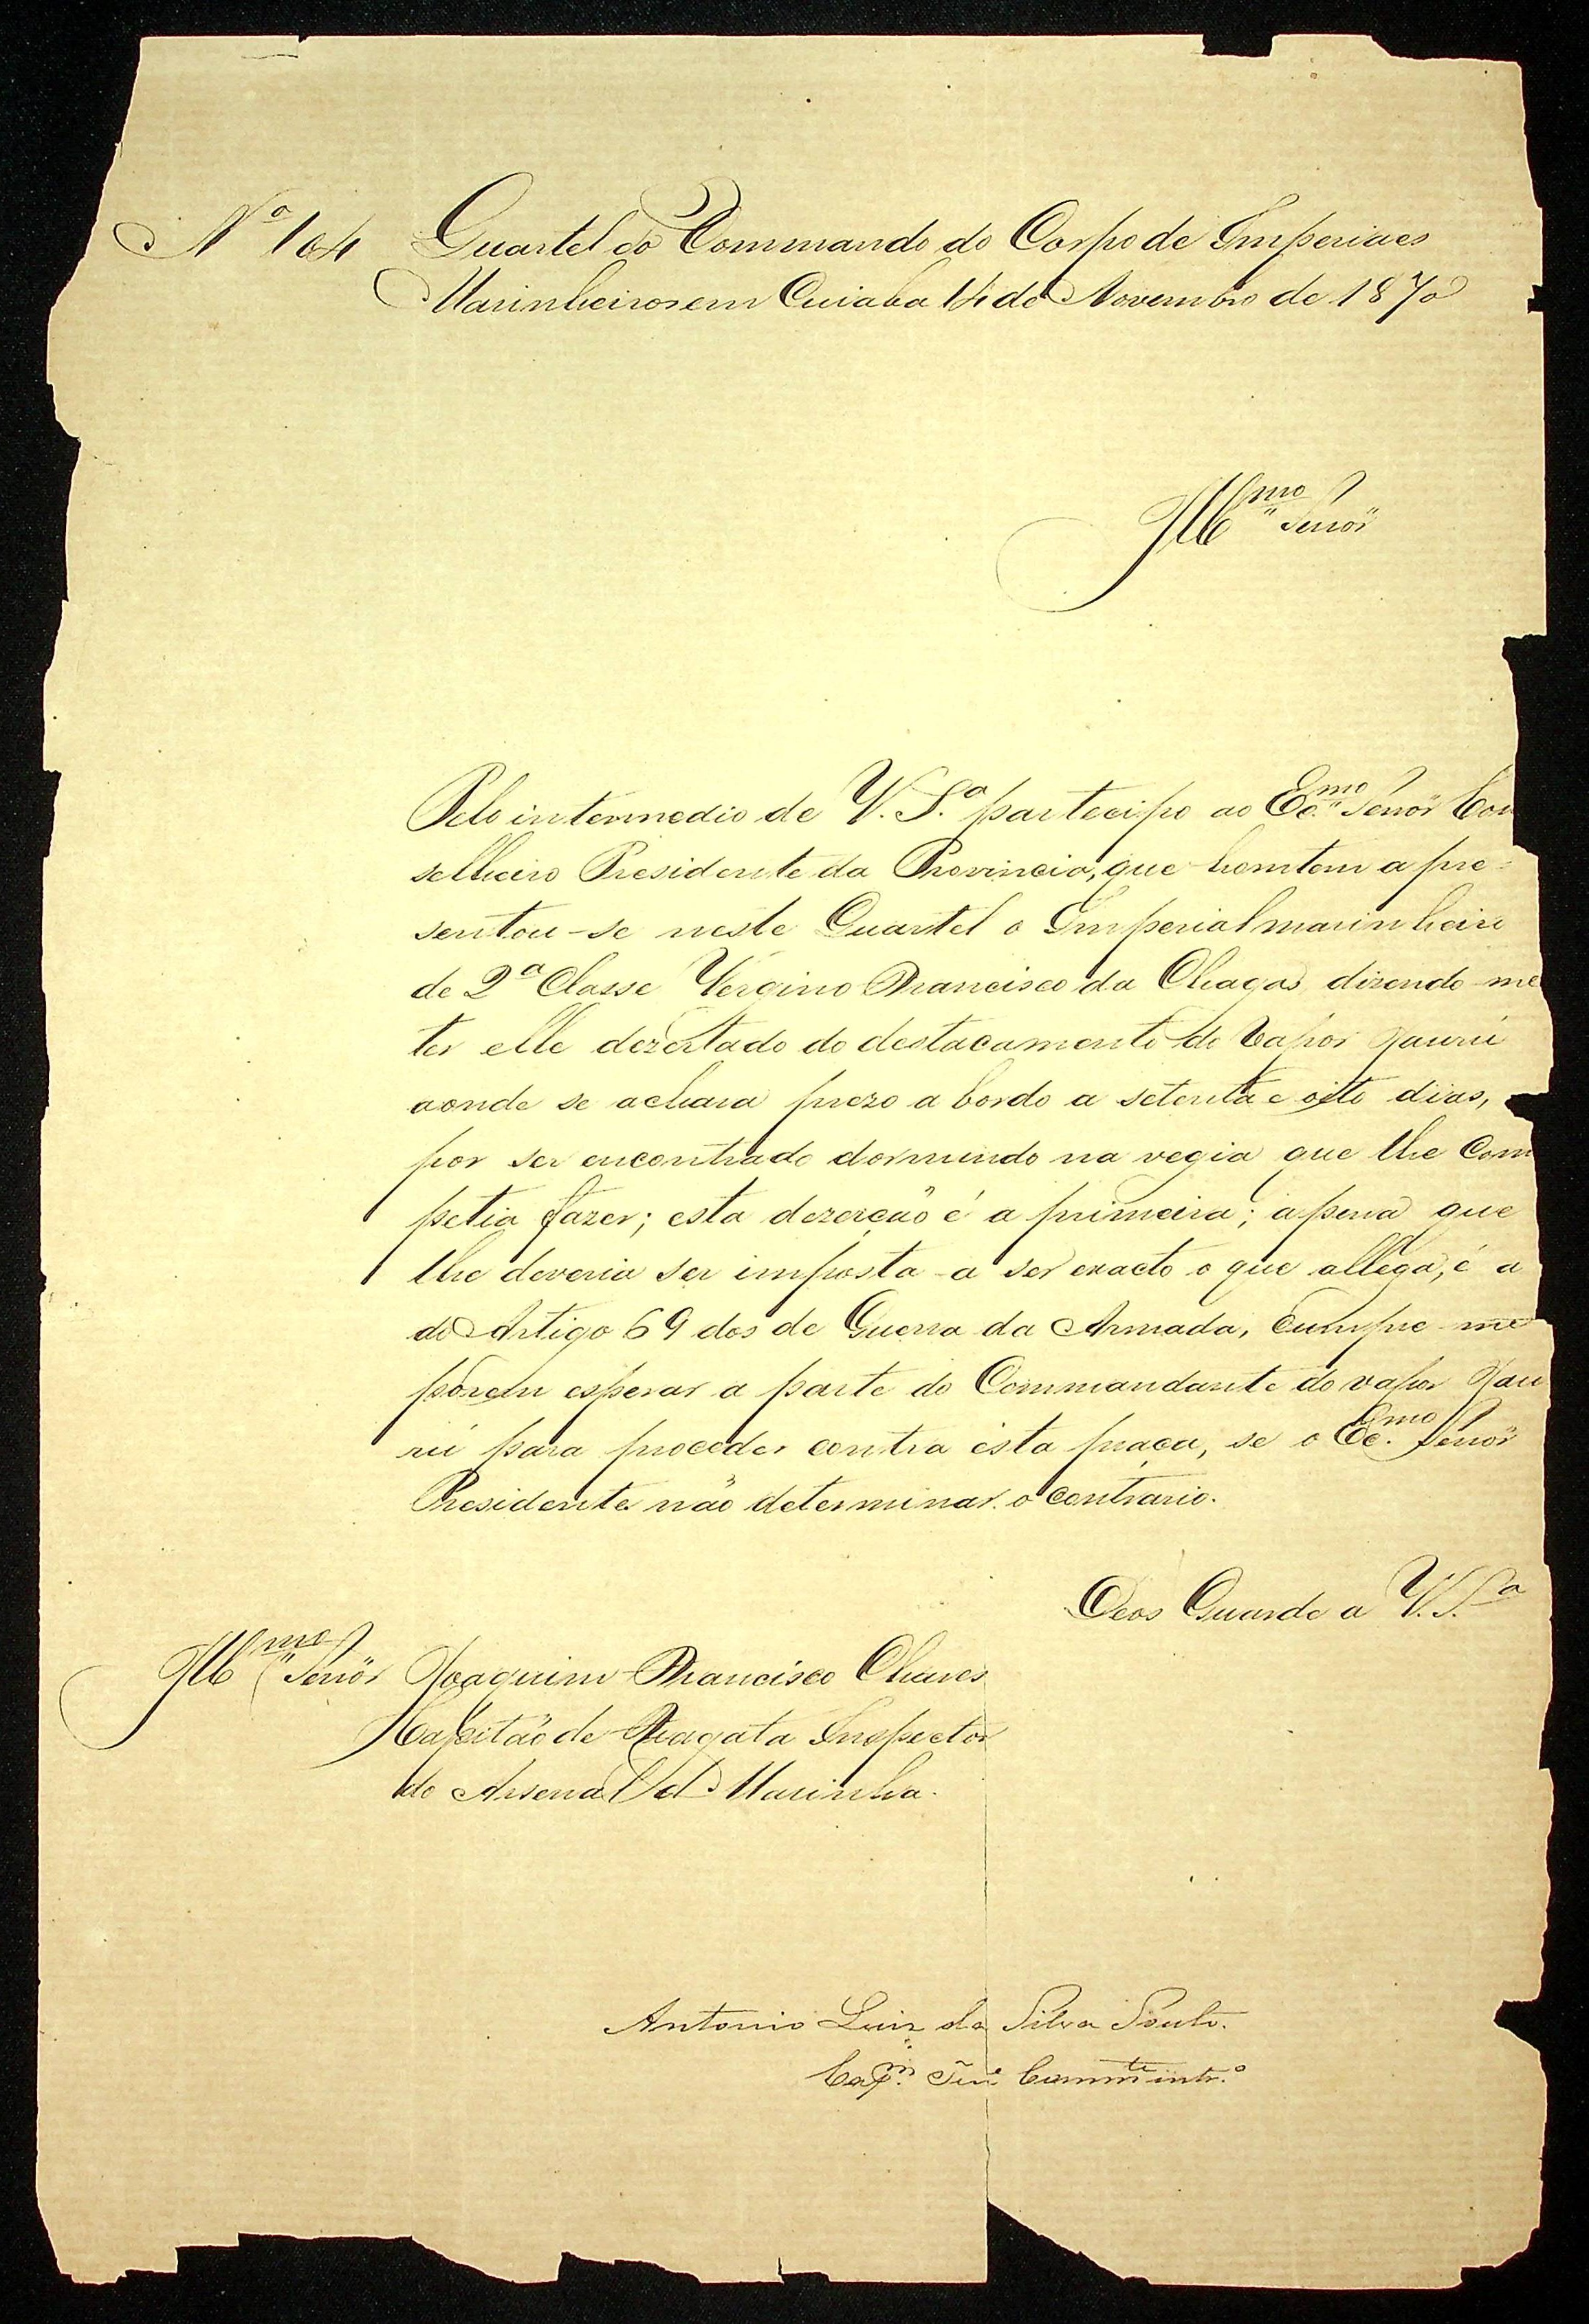 Nº 104 Quartel do Commando do Corpo de Imperiaes
Marinheiros em Cuiaba 14 de Novembro de 1870
Illmo Senor
Pelo intermedio de V. Sª partecipo ao Ecmo Senor Con
selheiro Presidente da Provincia, que hontem apre=
sentou-se neste Quartel o Imperial marinheiro
de 2ª Classe Vergino Francisco da Chagas dizendo-me
ter elle dezertado do destacamento do Vapor Jaurú
aonde se achava prezo a bordo a setenta e oito dias,
por ser encontrado dormindo na vegia que lhe Com
petia fazer; esta dezerção é a primeira; a pena que
lhe deveria ser imposta a ser exacto o que allega, é a
do Artigo 69 dos de Guerra da Armada, Cumpre-me
porem esperar a parte do Commandante do vapor Jau
rú para proceder contra esta praça, se o Ecmo Senor
Presidente não determinar o contrario.
Deos Guarde a V. Sª
Illmo Senor Joaquim Francisco Chaves
Capitão de Fragata Inspector
do Arsenal de Marinha.
Antonio Luiz da Silva Souto.
Capm. Tene Commte intrº